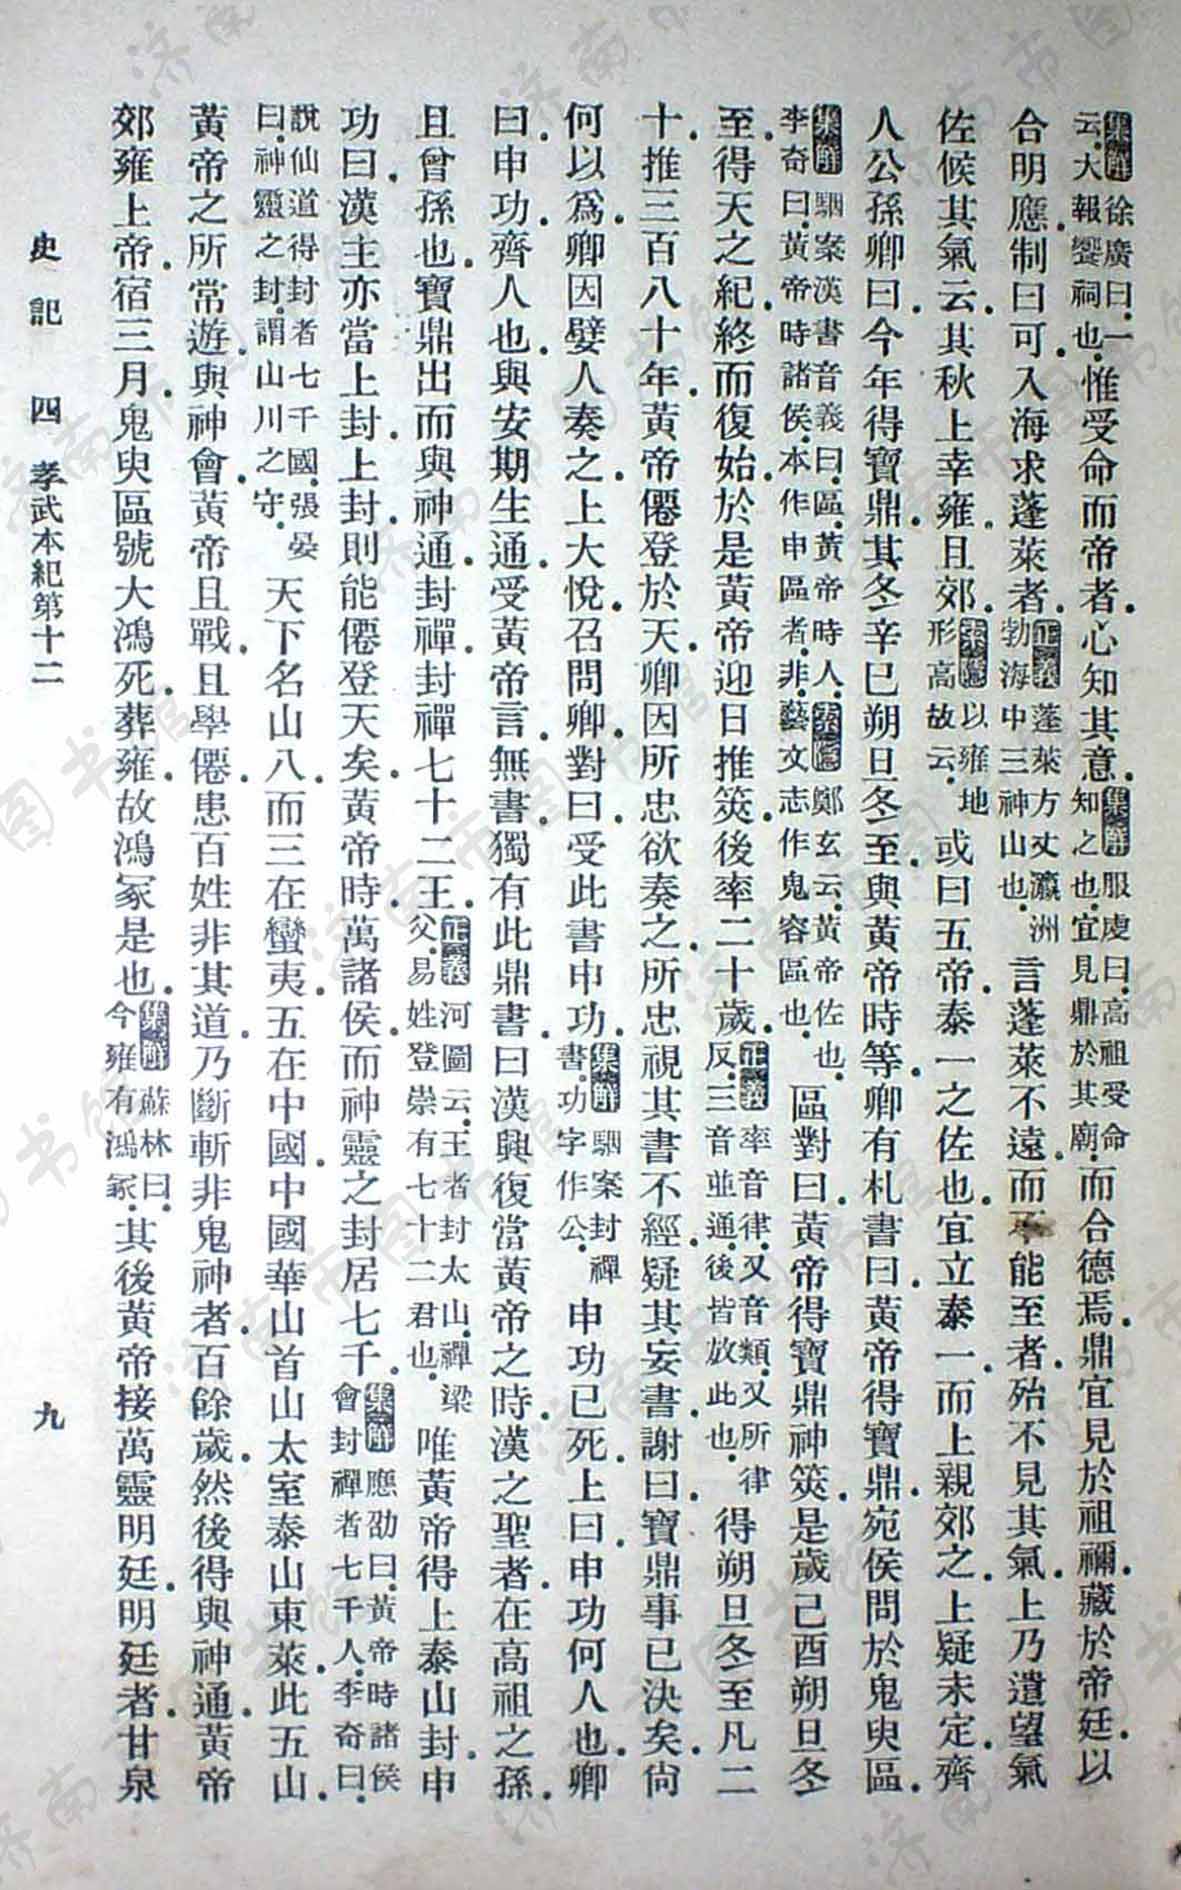 集解徐廣曰一云大報饗祠也惟受命而帝者心知其意集解服虔曰高祖受命知之也宜見鼎於其廟而合德焉鼎宜見於祖禰藏於帝廷以
合明應制曰可入海求蓬萊者正義蓬萊方丈瀛洲勃海中三神山也言蓬萊不遠而不能至者殆不見其氣上乃遣望氣
佐候其氣云其秋上幸雍且郊索隱以雍地形高故云或曰五帝泰一之佐也宜立泰一而上親郊之上疑未定齊
人公孫卿曰今年得寶鼎其冬辛巳朔旦冬至與黃帝時等卿有札書曰黃帝得寶鼎宛侯問於鬼臾區
集解駰案漢書音義曰區黃帝時人李奇曰黃帝時諸侯本作申區者非藝文志作鬼容區也索隱鄭玄云黃帝佐也區對曰黃帝得寶鼎神筴是歲己酉朔旦冬
至得天之紀終而復始於是黃帝迎日推筴後率二十歲正義率音律又音類又所律反三音並通後皆放此也得朔旦冬至凡二
十推三百八十年黃帝僊登於天卿因所忠欲奏之所忠視其書不經疑其妄書謝曰寶鼎事已決矣尙
何以爲卿因嬖人奏之上大悅召問卿對曰受此書申功集解駰案封禪書功字作公申功已死上曰申功何人也卿
曰申功齊人也與安期生通受黃帝言無書獨有此鼎書曰漢興復當黃帝之時漢之聖者在高祖之孫
且曾孫也寶鼎出而與神通封禪封禪七十二王正義河圖云王者封太山禪梁父易姓登崇有七十二君也唯黃帝得上泰山封申
功曰漢主亦當上封上封則能僊登天矣黃帝時萬諸侯而神靈之封居七千集解應劭曰黃帝時諸侯會封禪者七千人李奇曰
說仙道得封者七千國張晏曰神靈之封謂山川之守天下名山八而三在蠻夷五在中國中國華山首山太室泰山東萊此五山
黃帝之所常遊與神會黃帝且戰且學僊患百姓非其道乃斷斬非鬼神者百餘歲然後得與神通黃帝
郊雍上帝宿三月鬼臾區號大鴻死葬雍故鴻冢是也集解蘇林曰今雍有鴻冢其後黃帝接萬靈明廷明廷者甘泉
史記 四 孝武本紀第十二 九